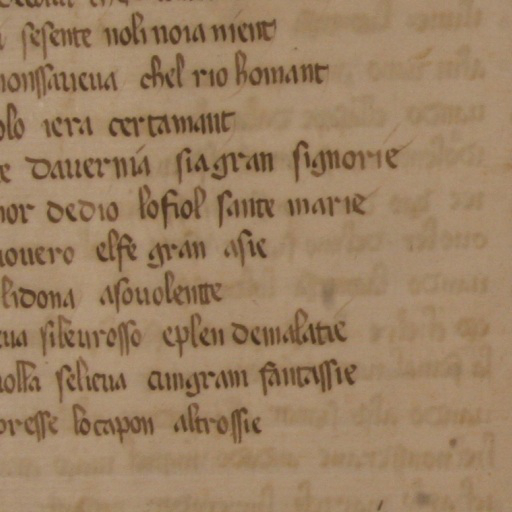 sesente noli noia nient
nonssaueua chel rio homant
olo iera certamant
te dauernia siagran signorie
nor dedio lofiol sante marie
nouero elfe gran asie
lidona asouolente
eua sibeurosso eplen demalatie
uolta selieua cungram fantassie
presse locapon altrossie